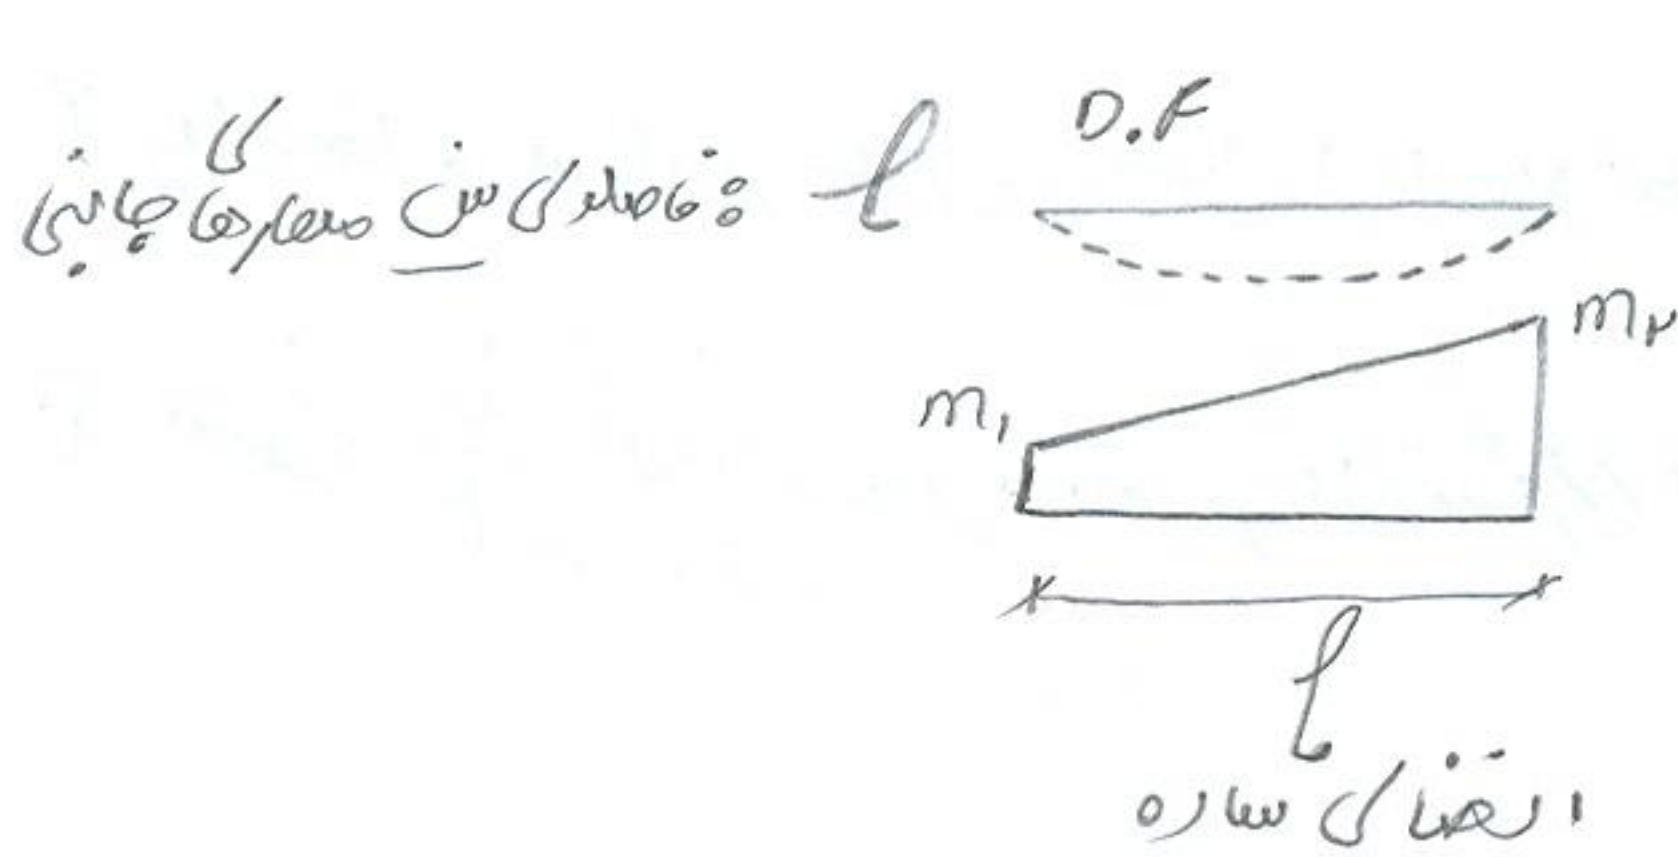 D.F
l : فاصله‌ی بین مهارهای جانبی
m۲
m۱
l
انحنای ساده